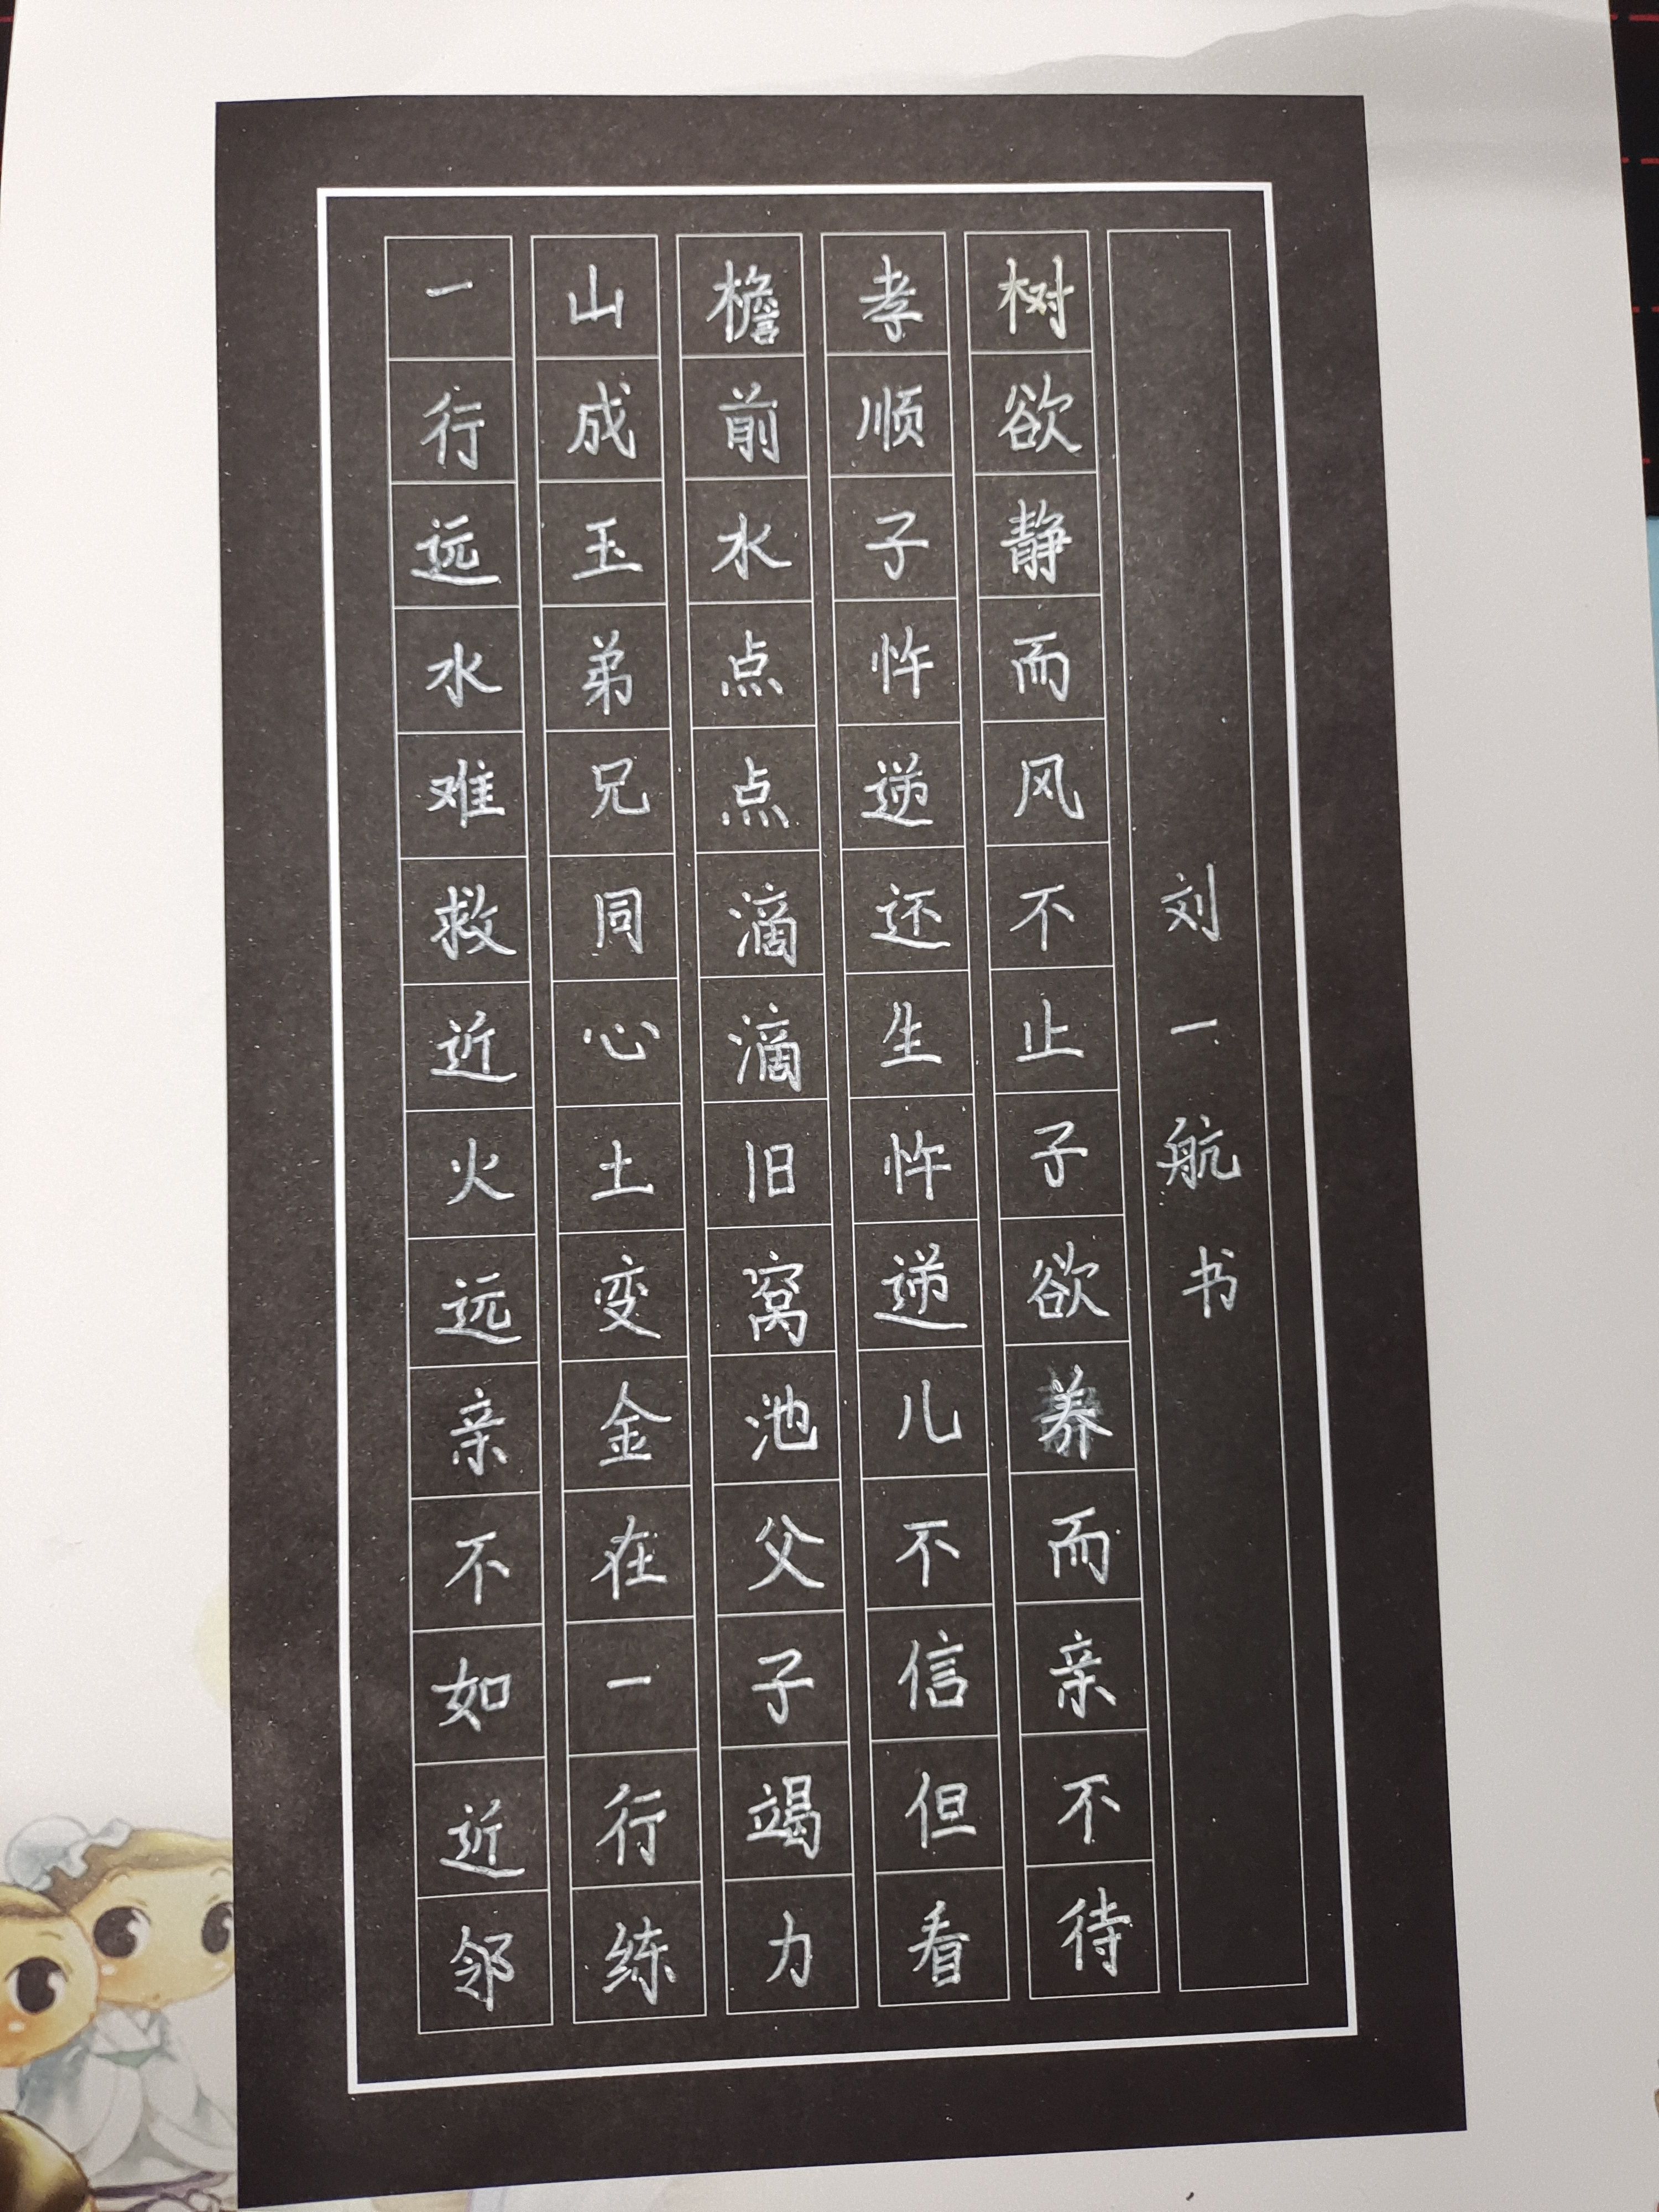 刘一航书
树欲静而风不止子欲养而亲不待
孝顺子忤逆还生忤逆儿不信但看
檐前水点点滴滴旧窝池父子竭力
山成玉弟兄同心土变金在一行练
一行远水难救近火远亲不如近邻